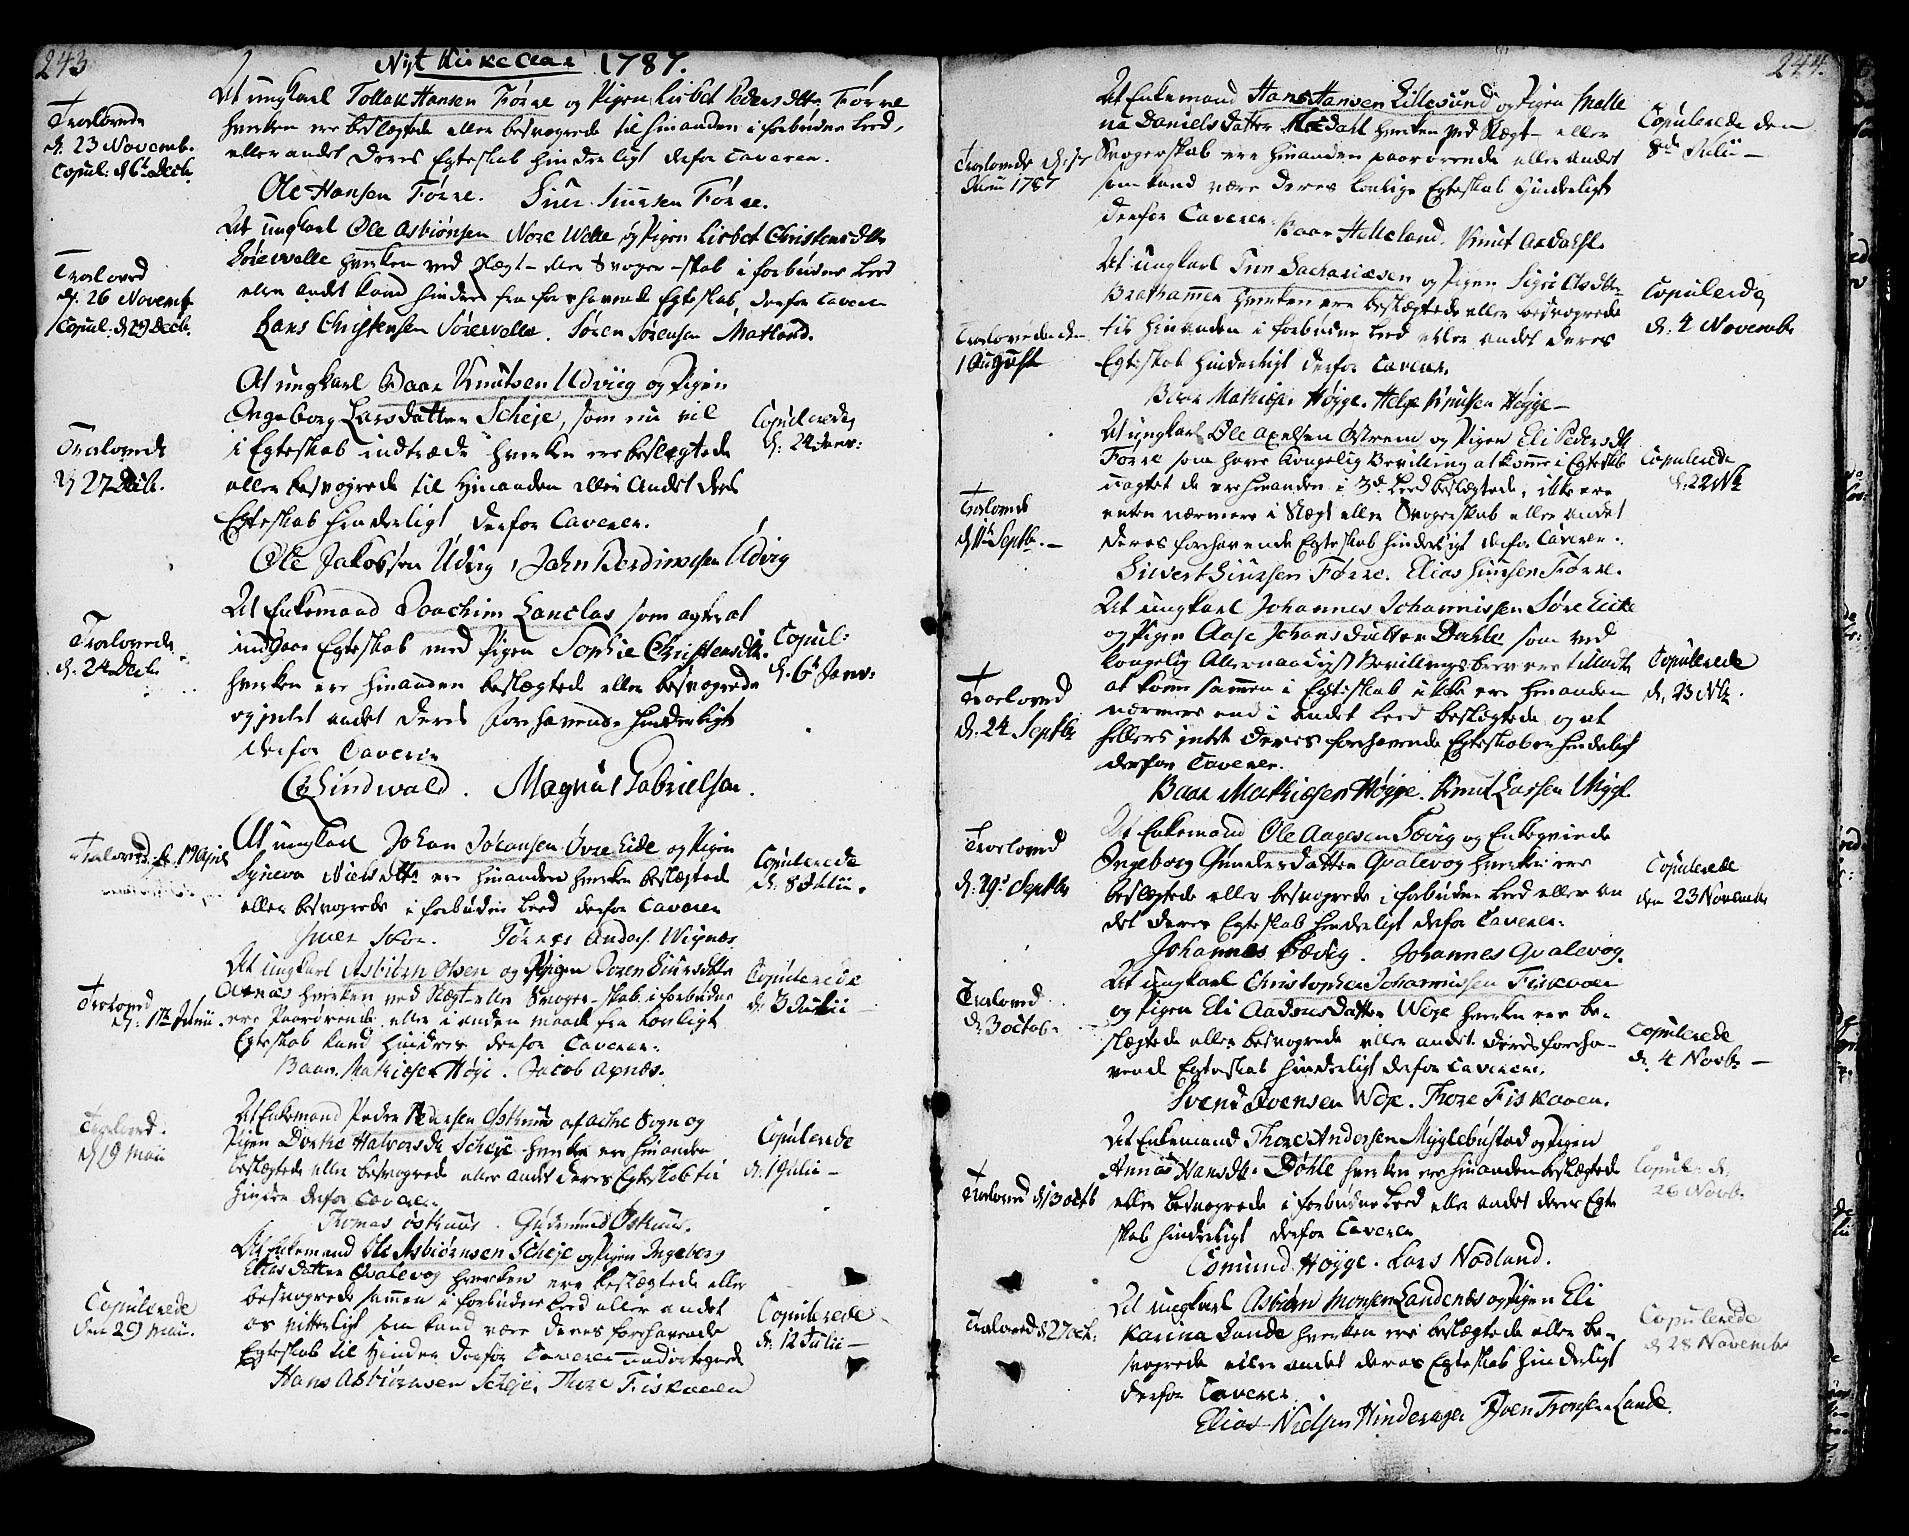 243
Nyt Kirke Aar 1787.
Troelovede
d. 23 Novemb.
Copul: d 6t Decb.
At ungkarl Tollak Hansen Førre og Pigen Lisbet Peders dtr Førre
hverken ere beslægtede eller besvogrede til hinanden i forbudne leed,
eller andet Deres Egteskab hinderligt derfor Caverer.
Ole Hansen Førre. Siver Siursen Førre.
Troelovede
d. 26 Novemb
Copul. d 29 Decb.
At ungkarl Ole Asbiønsen Nore Welle og Pigen Lisbet Christens dtr
Sørewelle hverken ved Slægt- eller Svoger-skab i forbudne leed
eller andet kand hindres fra forhavende Egteskab, derfor Caverer
Hans Christensen Sørewelle. Søren Sørensen Matland.
Troelovede
d 27 Decb.
At ungkarl Baar Knutsen Udviig og Pigen
Ingeborg Larsdatter Scheje, som nu vil
i Egteskab indtræde hverken ere beslegtede
eller besvogrede til Hinanden eller Andet Deres
Egteskab hinderligt derfor Caverer.
Ole Jakobsen Udvig, John Ferdinandsen Udvig
Copulerede
d: 24 Janv:
Troelovede
d. 24 Decb.
At Enkemand Joachim Lanclas som agter at
indgaae Egteskab med Pigen Sophie Christensdtr.
hverken ere hinanden beslegtede eller besvogrede
og intet andet Deres forehavende hinderligt
derfor Caverer
Lindwald. Magnus Gabrielsen.
Copul:
d. 6t Janv:
Troelovd d. 19 April
At ungkarl Johan Johansen Øvre Eide og Pigen
Syneva Niels dtr ere hinanden hverken beslegtede
eller besvogrede i forbudne leed derfor Caverer
Iver Stør. Tørres Anders. Wignes
Copulerede
d. 8 Julii.
Troelovd
d. 11te Junii.
At ungkarl Asbiørn Olsen og Pigen Joren Siursdtr
Apnæs hverken ved Slegt- eller Svoger-skab i forbudne
ere Paarørende eller i anden maade fra lovligt
Egteskab kand hindres derfor Caverer.
Baar Mathiesen Høje. Jacob Apnæs.
Copulerede
d. 3 Julii —
Troelovd.
d 19 Maii
At Enkemand Peder Pedersen Østhuus af Achre Sogn og
Pigen Dorthe Halvorsdtr Scheje hverken ere hinanden
beslegtede eller besvogrede eller andet deres Egteskab til
hinder derfor Caverer.
Thomas Østhuus. Gudmund Østhuus.
Copulerede
d. 1 Julii —
Copulerede
den 29 Maii.
At Enkemand Ole Asbiørnsen Scheje og Pigen Ingeborg
Elias datter Qvalevog hverken ere beslegtede eller
besvogrede sammen i forbudne leed eller andet
os vitterligt som kand være deres forehavende
Egteskab til Hinder derfor Caverer undertegnede
Hans Asbiørnsen Scheje. Thore Fiskaaen
Copulerede
d. 12 Julii —
244.
Troelovede d. 17
Junii 1787
At Enkemand Hans Hansen Lillesund og Pigen Malle
na Daniels datter hverken ved Slegt- eller
Svogerskab ere hinanden paarørende eller andet
som kand være deres lovlige Egteskab hinderligt
derfor Caverer. Baar Helleland. Knut Aadahl.
Copulerede den
8de Julii —
Troelovede den
1 August
At ungkarl Sachariasen og Pigen Sigri Olsdtr
Brathammer hverken ere beslegtede eller besvogrede
til hinanden i forbudne leed eller andet deres
Egteskab hinderligt derfor Caverer.
Baar Mathiesen Høyge. Helge Knudsen Høyge —
Copulerede
d. 4 Novembr
Troelovede
d 11te Septbr. —
At ungkarl Ole Axelsen Østrem og Pigen Eli Pedersdtr
Førre som have kongelig Bevilling at komme i Egteskab
uagtet de ere hinanden i 3de leed beslegtede, ikke ere
enten nærmere i Slegt eller Svogerskab eller andet
deres forehavende Egteskab hinderligt derfor Caverer.
Sivert Siursen Førre. Elias Siursen Førre.
Copulerede
d. 22 Nbr
Troelovd
d. 24 Septbr
At ungkarl Johannes Johannissen Søre Eide
og Pigen Aase Johansdatter Dahle som ved
kongelig Allernaadigst Bevillings brev ere tilladte
at komme sammen i Egteskab ikke ere hinanden
nærmere end i andet leed beslegtede og at
hellers intet deres forehavende Egteskab er hinderligt
derfor Caverer.
Baar Mathiesen Høyge. Knut Larsen
Copulerede
d. 23 Nbr.
Troelovd
d. 29de Septbr
At Enkemand Ole Aagesen Sævig og Enkeqvinde
Ingeborg Gundersdatter Qvalevog hverken ere
beslegtede eller besvogrede i forbudne leed eller an
det deres Egteskab hinderligt derfor Caverer.
Johannes Sævig. Johannes Qvalevog.
Copulerede
den 23 Novembr
Troelovd
d. 3 octob.
At ungkarl Christopher Johannissen Fiskaaen
og Pigen Eli Aadensdatter Weje hverken ere be-
slegtede eller besvogrede eller andet deres foreha-
vend Egteskab hinderligt derfor Caverer.
Svend Svensen Weje. Thore Fiskaaen.
Copulerede
d. 4 Novbr —
Troelovd d 13 octb
At Enkemand Thore Andersen Myglebustad og Pigen
Annas Hansdtr. Døhle hverken ere hinanden beslegtede
eller besvogrede i forbudne leed eller andet deres Egte
skab hinderligt derfor Caverer
Osmund Høyge. Lars Nodland.
Copuler. d.
26 Novb.
Troelovd d 27 oct.
At ungkarl Asbiørn Monsen Landenes og Pigen Eli
Karina Lande hverken ere beslegtede eller be-
svogrede eller andet deres Egteskab hinderligt
derfor Caverer
Elias Nielsen Hinderager Iven Tronsen Lande.
Copulerede
d 28 Novembr